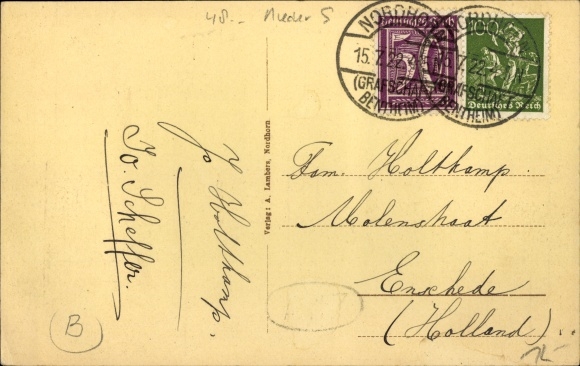 48.- Nieder S
NORDHORN
15.7.22.
(GRAFSCHAFT
BENTHEIM)
NORDHORN
7.22.
(GRAFSCHAFT
BENTHEIM)
50
100
Deutsches Reich
Jo. Scheffer.
Jo Holtkamp.
Verlag: A. Lambers, Nordhorn
Fam. Holtkamp.
Molenstraat
Enschede
(Holland)
B